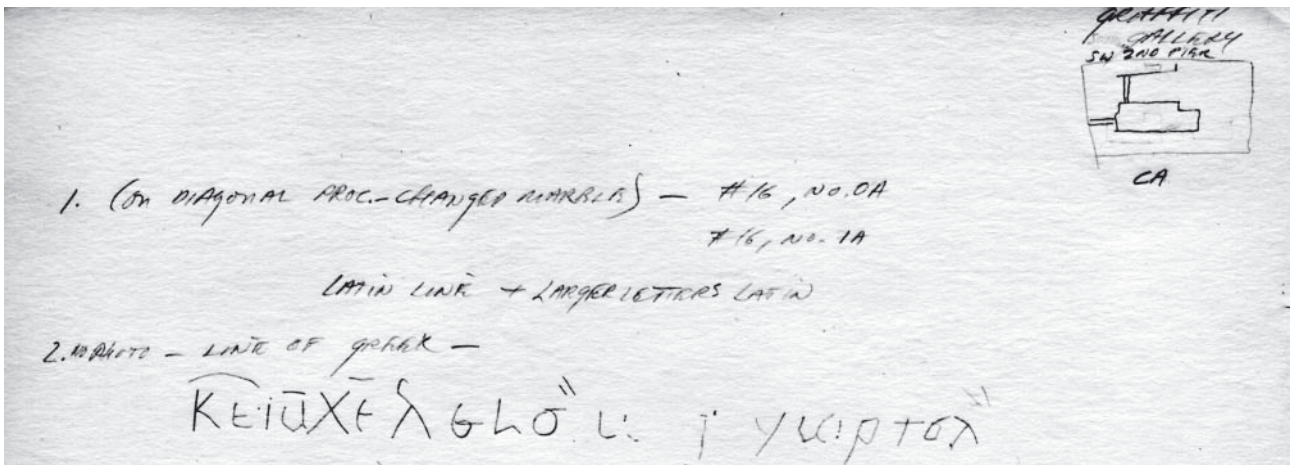 GRAFFITI
GALLERY
SW 2ND PIER
CA
1. (ON DIAGONAL PROC.-CHANGED MARBLE) — #16, NO. 0A
#16, NO. 1A
LATIN LINE + LARGER LETTERS LATIN
2. NO PHOTO — LINE OF GREEK —